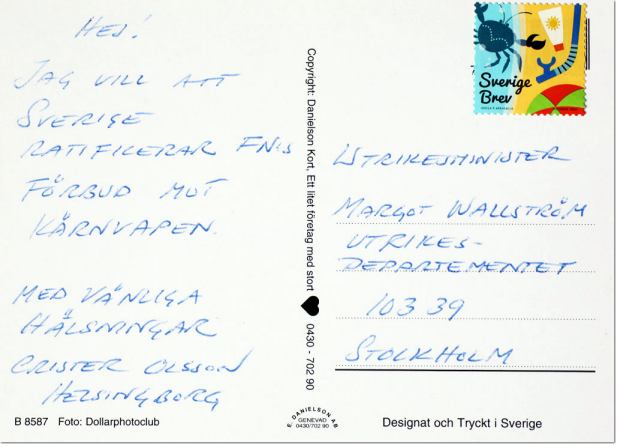 Hej!
Jag vill att
Sverige
ratificerar FN:s
förbud mot
kärnvapen.
Med vänliga
hälsningar
Crister Olsson
Helsingborg
B 8587 Foto: Dollarphotoclub
Copyright: Danielson Kort, Ett litet företag med stort ♥ 0430 - 702 90
E. DANIELSON AB
GENEVAD
0430/702 90
Sverige
Brev
Utrikesminister
Margot Wallström
Utrikes-
departementet
103 39
Stockholm
Designat och Tryckt i Sverige